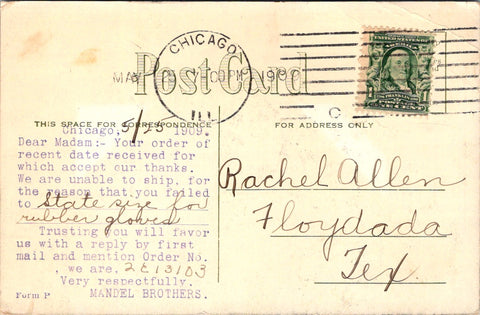 Post Card
CHICAGO
MAY
00 PM
1909
ILL
UNITED STATES OF AMERICA
THIS SPACE FOR CORRESPONDENCE
FOR ADDRESS ONLY
Chicago, 5/25 1909.
Dear Madam:- Your order of
recent date received for
which accept our thanks.
We are unable to ship, for
the reason that you failed
to state size for
rubber gloves
Trusting you will favor
us with a reply by first
mail and mention Order No.
, we are, 2E13103
Very respectfully.
Form P MANDEL BROTHERS.
C
Rachel Allen
Floydada
Tex.